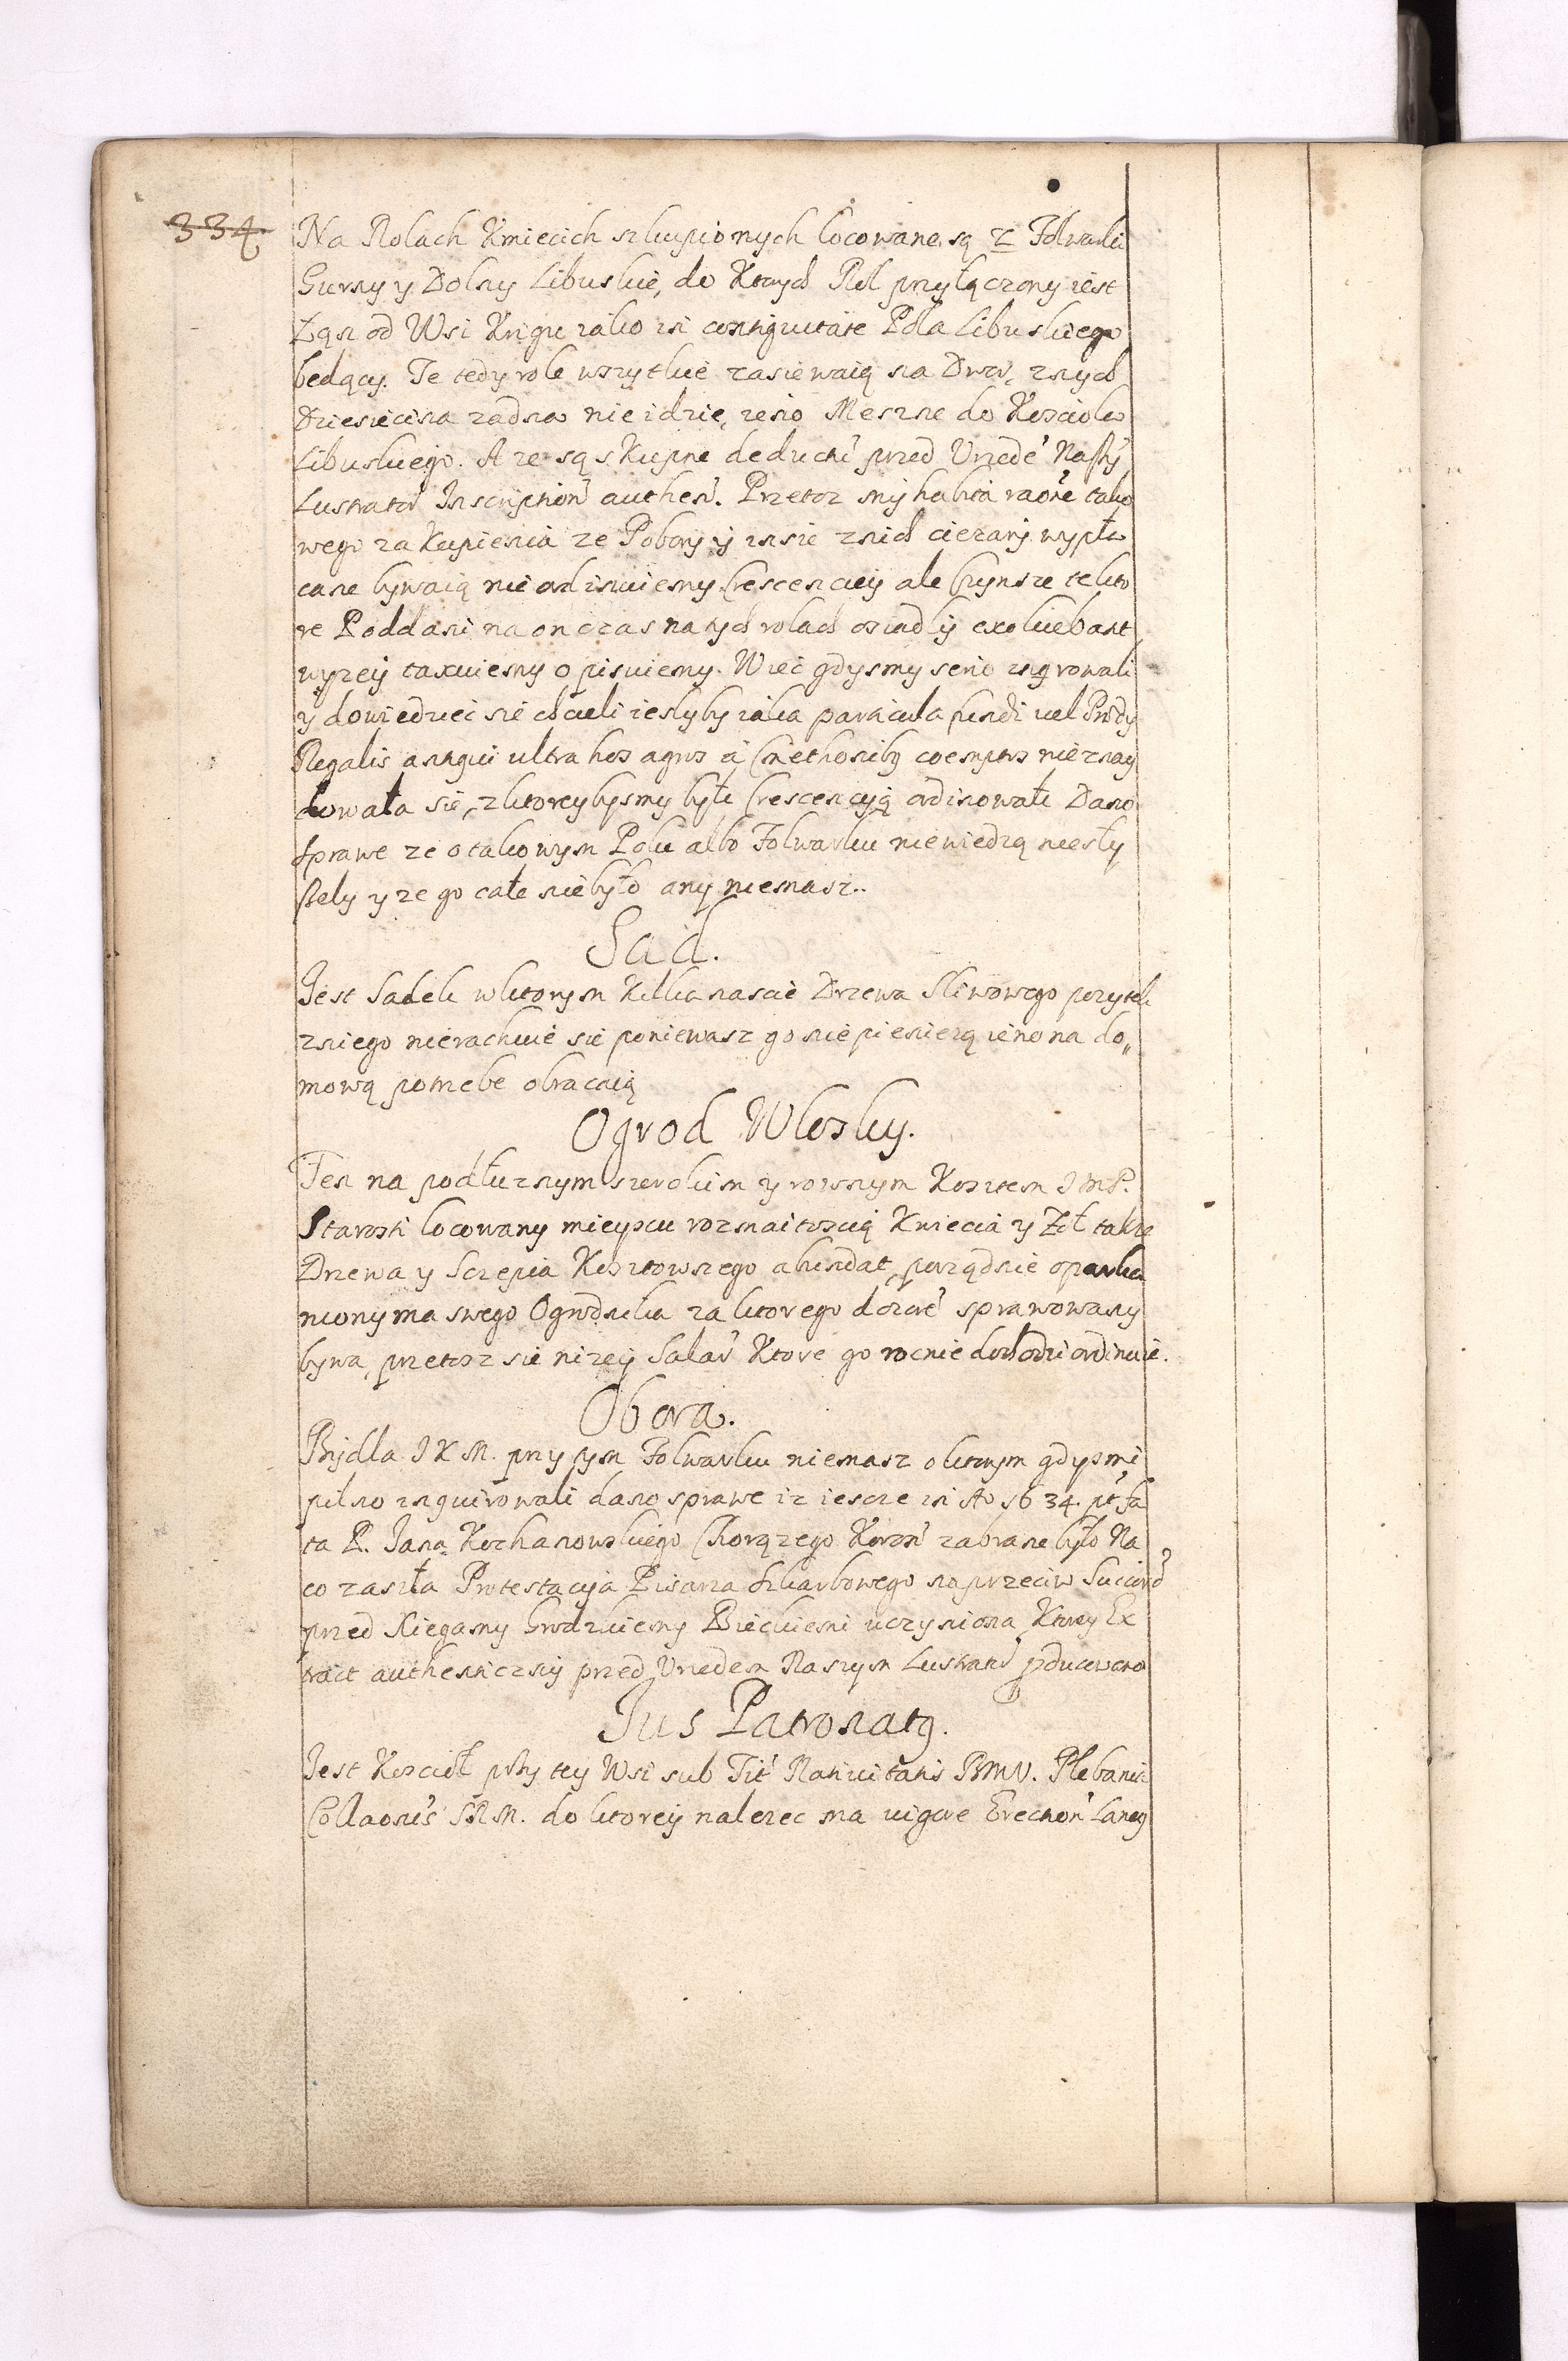 334
Na Rolach Kmiecich szkupionych locowane są 2 Folwarki
Gurny y Dolny Libuskie, do Ktrych Rol przyłączony iest
Łąn od Wsi Krigu iako in contiguitate Pola Libuskiego
będący. Te tedy role wszytkie zasiewaią na Dwor, znych
Dziesiecina zadna nie idzie, ieno Meszne do Kosciola
Libuskiego. A ze są skupne deduct' przed Vrzede' Naszy'
Lustrator' Inscription' authen'. Przetoz my habita raone tako
wego za Kupienia ze Pobory y insze znich ciezary wypła
cane bywaią nie ordinuiemy Crescenciey ale Czynsze te kto
re Poddani na on czas na tych rolach osiadly exoluebant
wyzey taxuiemy opisuiemy. Wiec gdysmy serio inqrowali
y dowiedziec sie chcieli ieslyby iaka particula fundi vel Prædy
Regalis antiqui ultra hos agros a Cmethonibq coemptos nieznay
dowała sie, z ktorey bysmy byłi Crescencyią ordinowałi Dano
sprawe ze o takowym Polu albo Folwarku niewiedzą niesły
szely y ze go całe niebyło any niemasz..
Sad.
Jest Sadek w ktorym Kilkanascie Drzewa Sliwowego pozytek
zniego nierachuie sie poniewasz go niepieniezą ieno na do„
mową potrzebe obracaią
Ogrod Wloski.
Ten na podłuznym szerokim y rownym Kosztem JMP.
Starosti locowany mieyscu rozmaitoscią Kwiecia y Zoł takze
Drzewa y Sczepia Kosztownego abundat, porządnie oparka
niony ma swego Ogrodnika za ktorego dozore' sprawowany
bywa, przetosz sie nizey Salar' Ktore go rocnie dochodzi ordinuie.
Obora.
Bydła JKM. przy tym Folwarku niemasz o ktorym gdysmi
pilno inquirowali dano sprawe iz iescze in Ao 1634. pt' fa
ta P. Jana Kochanowskiego Chorązego Koron' zabrane było Na
co zaszła Protestacyia Pisarza skarbowego naprzeciw Succord'
przed Xiegamy Grodzkiemy Bieckiemi uczyniona Ktorey Ex
tract authenticzny przed Vrzedem Naszym Lustrator' pducowano
Jus Patronatq.
Jest Koscioł przy tey Wsi sub Tit' Nativitatis BMV. Plebania
Collaonis SRM. do ktorey nalezec ma vigore Erection' Laneq